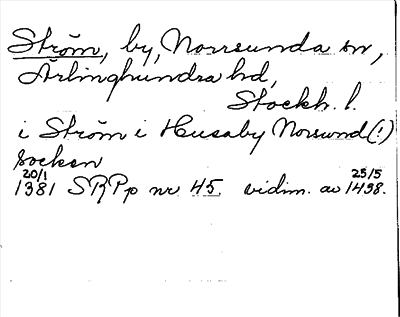 Ström, by, Norrsunda sn,
Ärlinghundra hd,
Stockh. l.
i Ström i Husaby Norswnd (!)
socken
20/1 25/5
1381 SRPp nr 45. vidim. av 1498.